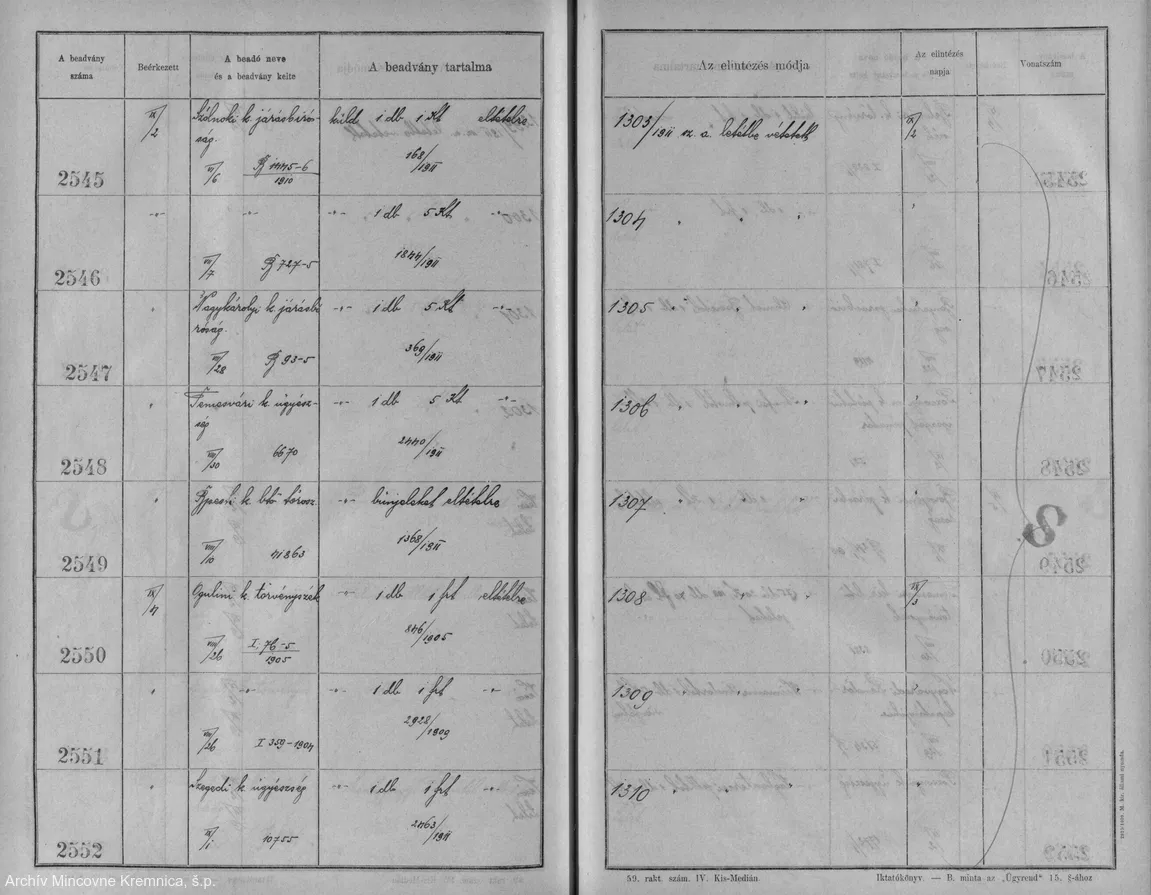 A beadvány száma
Beérkezett
A beadó neve és a beadvány kelte
A beadvány tartalma
Az elintézés módja
Az elintézés napja
Vonatszám
2545
IX/2
Szolnoki k. járásbíró-
ság.
1445-6/1910
küld 1 db 1 Kt eltételre
168/1911
1303/1911 sz. a. letétbe vétetett
IX/2
2546
-"-
VIII/7
727-5
-"- 1 db 5 Kt -"-
1844/1911
1304 " " "
2547
"
Nagykárolyi k. járásbí
róság.
VIII/28
93-5
-"- 1 db 5 Kt
369/1911
1305 " " "
2548
"
Temesvári k. ügyész-
ség
VIII/30 6670
-"- 1 db 5 Kt -"-
2440/1911
1306 " " "
2549
"
Bpesti k. btő törvsz.
VIII/10 41863
-"- bűnjeleket eltételre
1368/1911
1307 " " "
2550
IX/4
Ogulini k. törvényszék
VIII/26 I. 76-5/1905
-"- 1 db 1 frt eltételre
846/1905
1308 " " "
IX/3
2551
"
-"-
VIII/26 I 359-1904
-"- 1 db 1 frt -"-
2928/1909
1309 " " "
2552
Szegedi k. ügyészség
IX/1. 10755
-"- 1 db 1 frt
2463/1911
1310 " " "
59. rakt. szám. IV. Kis-Medián.
Iktatókönyv. — B. minta az „Ügyrend" 15. §-ához
Archív Mincovne Kremnica, š.p.